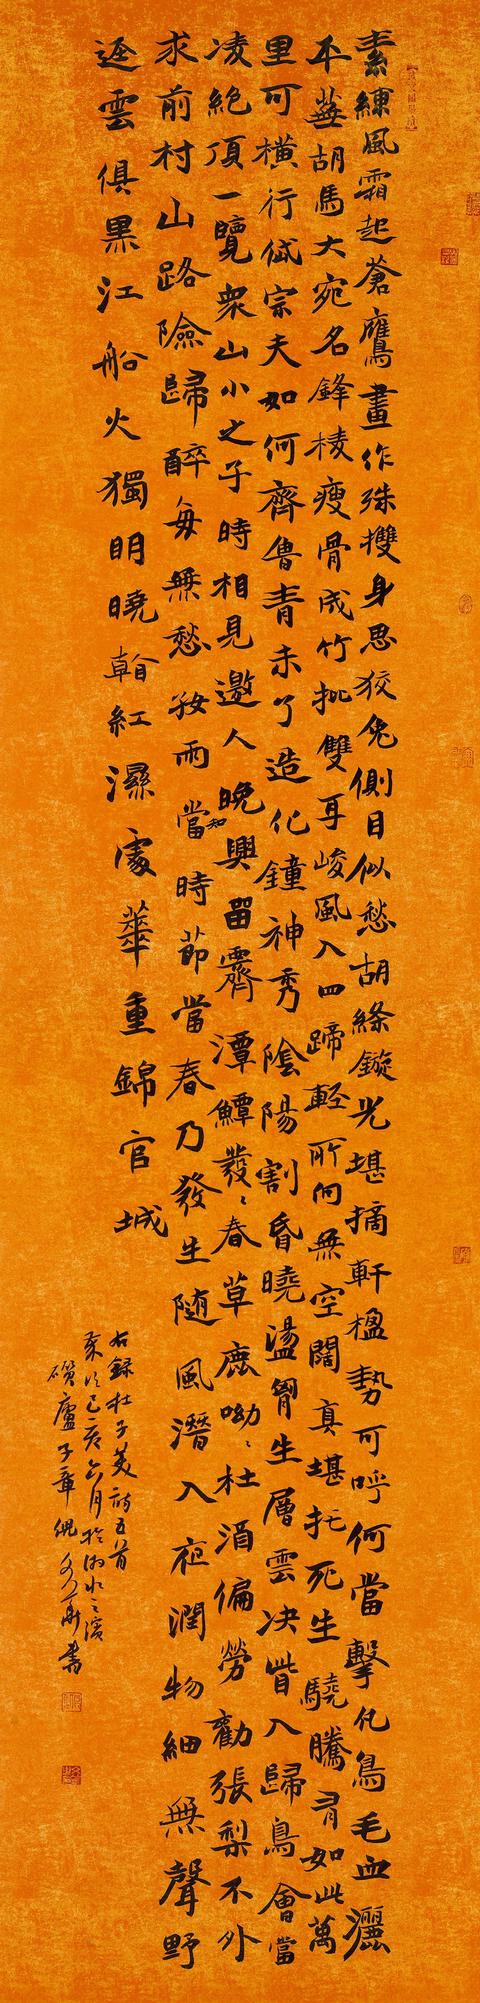 素練風霜起蒼鷹畫作殊㩳身思狡兔側目似愁胡絛鏇光堪摘軒楹勢可呼何當擊凡鳥毛血灑
平蕪胡馬大宛名鋒棱瘦骨成竹批雙耳峻風入四蹄輕所向無空闊真堪托死生驍騰有如此萬
里可橫行岱宗夫如何齊魯青未了造化鐘神秀陰陽割昏曉盪胷生層雲決眥入歸鳥會當
凌絕頂一覽衆山小之子時相見邀人晚興留霽潭鱣發〻春草鹿呦〻杜酒偏勞勸張梨不外
求前村山路險歸醉每無愁好雨當知時節當春乃發生隨風潛入夜潤物細無聲野
逕雲俱黑江船火獨明曉看紅濕處華重錦官城
右錄杜子美詩五首
歲次己亥六月於湘水之濱
廬子章倪文華書